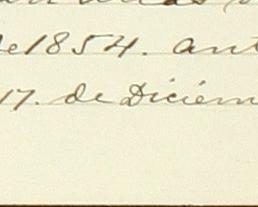 de 1854. ant
17. de Diciem